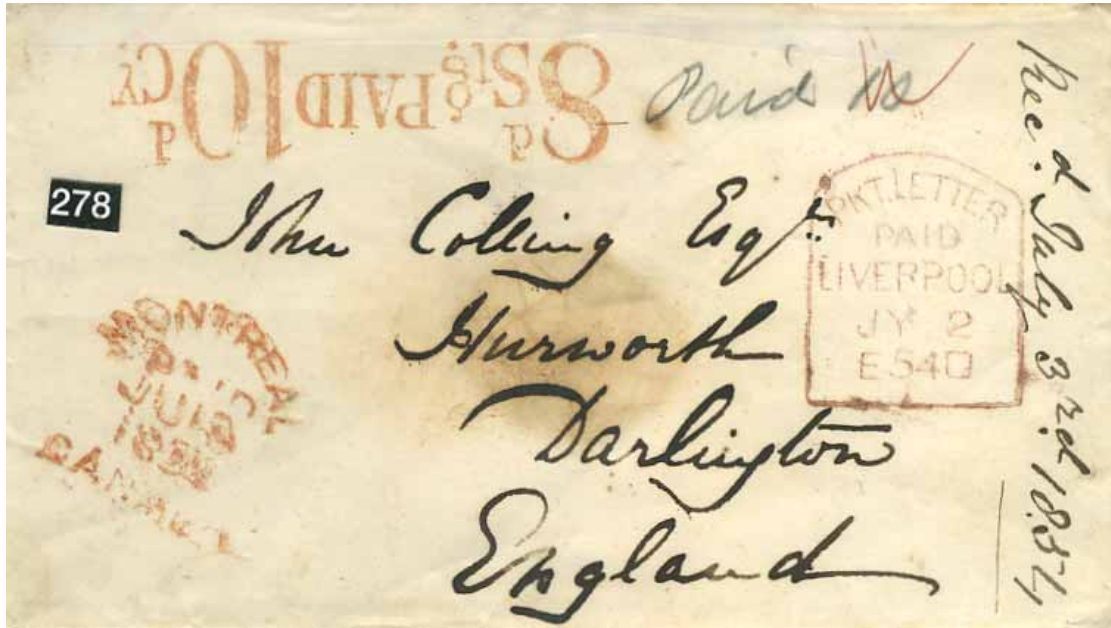 8d Stg PAID 10d CY.
Paid
278
John Colling Esqr.
Hurworth
Darlington
England
PKT. LETTER
PAID
LIVERPOOL
JY 2
E54D
MONTREAL
PAID
CANADA
Rec.d July 3rd 1854